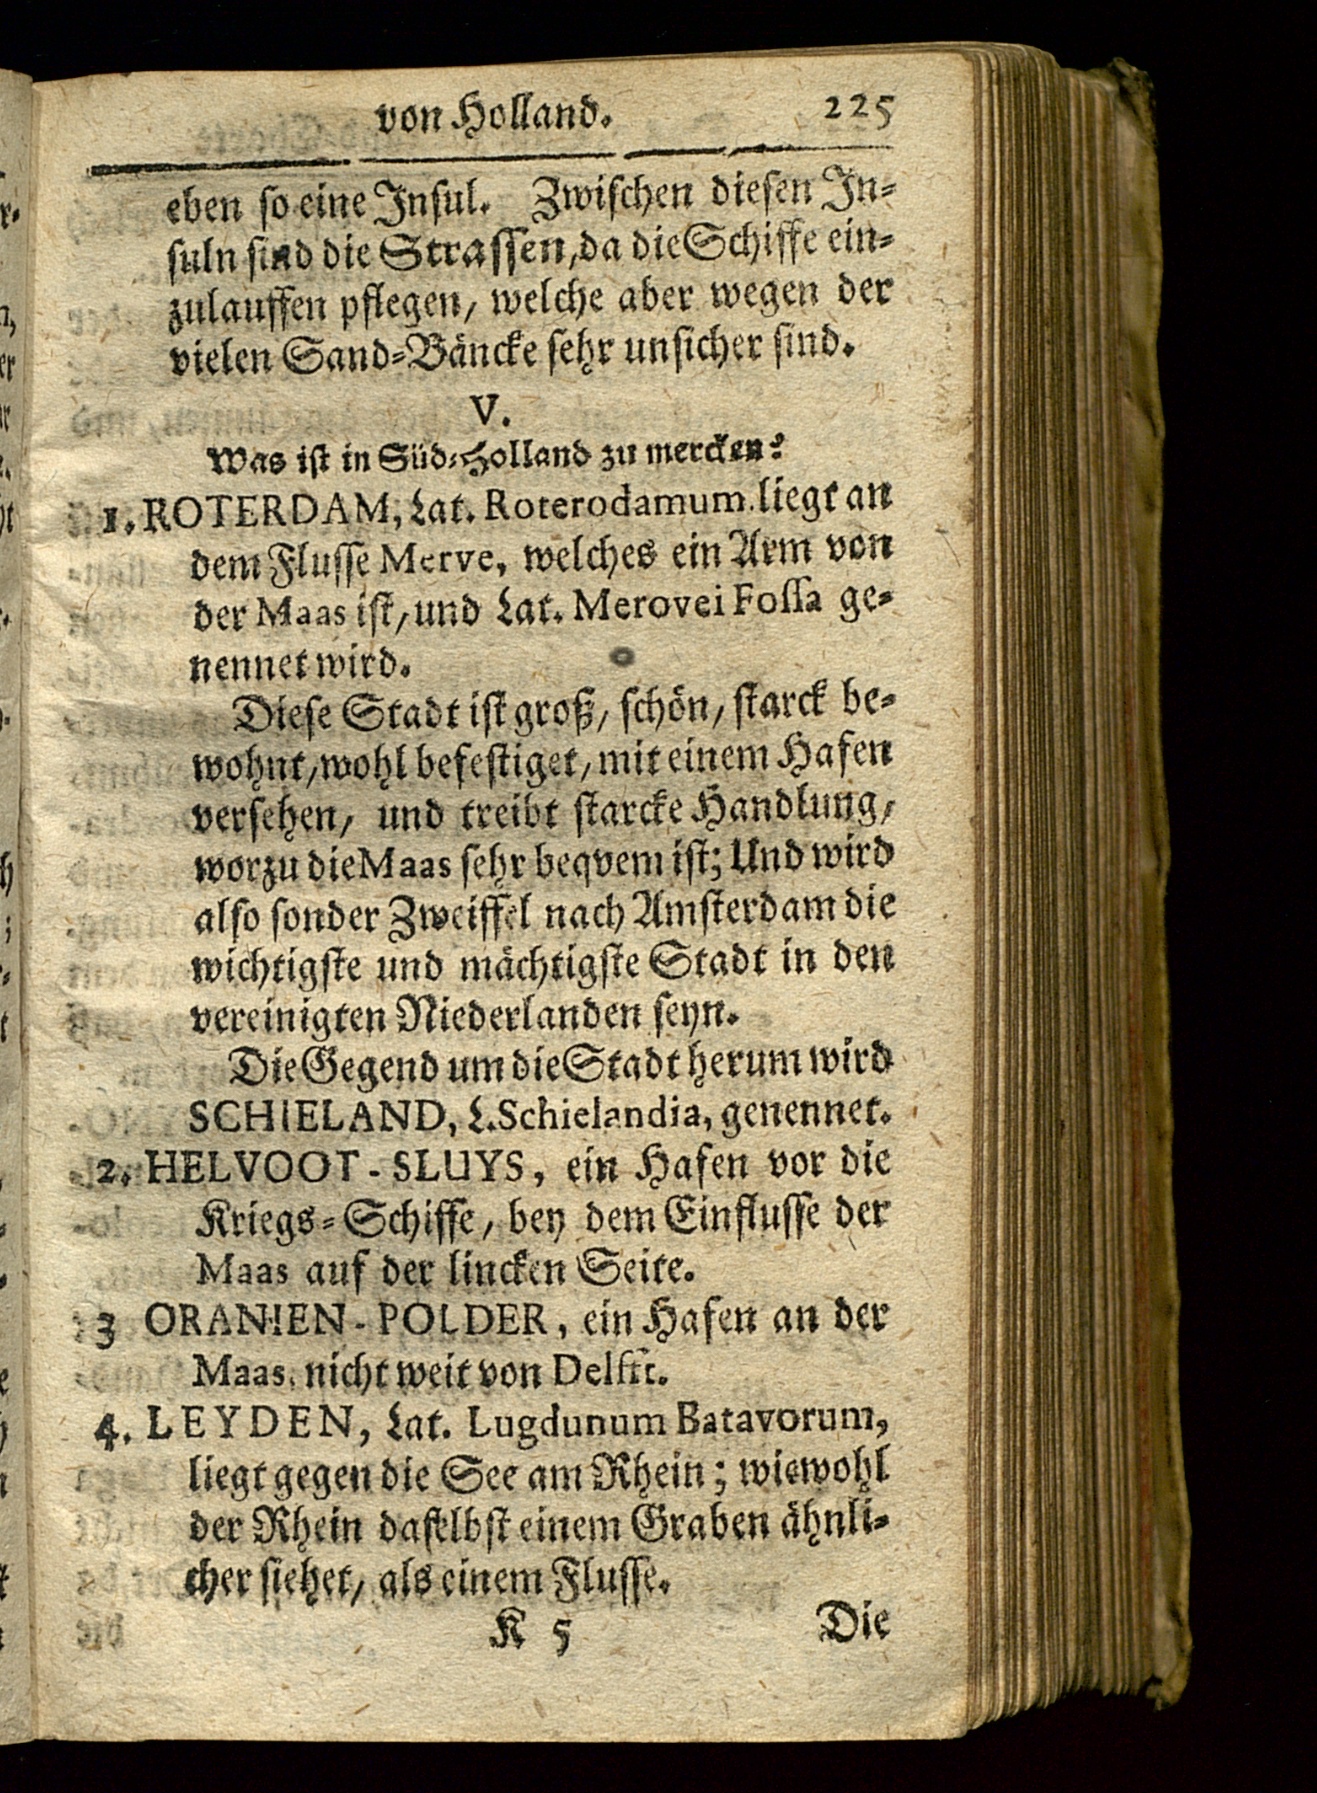 von Holland. 225
eben so eine Insul. Zwischen diesen In-
suln sind die Strassen, da die Schiffe ein-
zulauffen pflegen, welche aber wegen der
vielen Sand-Bäncke sehr unsicher sind.
V.
Was ist in Süd-Holland zu mercken?
1. ROTERDAM, Lat. Roterodamum. liegt an
dem Flusse Merve, welches ein Arm von
der Maas ist, und Lat. Merovei Fossa ge-
nennet wird.
Diese Stadt ist groß, schön, starck be-
wohnt, wohl befestiget, mit einem Hafen
versehen, und treibt starcke Handlung,
worzu die Maas sehr beqvem ist; Und wird
also sonder Zweiffel nach Amsterdam die
wichtigste und mächtigste Stadt in den
vereinigten Niederlanden seyn.
Die Gegend um die Stadt herum wird
SCHIELAND, L. Schielandia, genennet.
2. HELVOOT-SLUYS, ein Hafen vor die
Kriegs-Schiffe, bey dem Einflusse der
Maas auf der lincken Seite.
3 ORANIEN-POLDER, ein Hafen an der
Maas, nicht weit von Delfft.
4. LEYDEN, Lat. Lugdunum Batavorum,
liegt gegen die See am Rhein; wiewohl
der Rhein daselbst einem Graben ähnli-
cher siehet, als einem Flusse.
K 5 Die